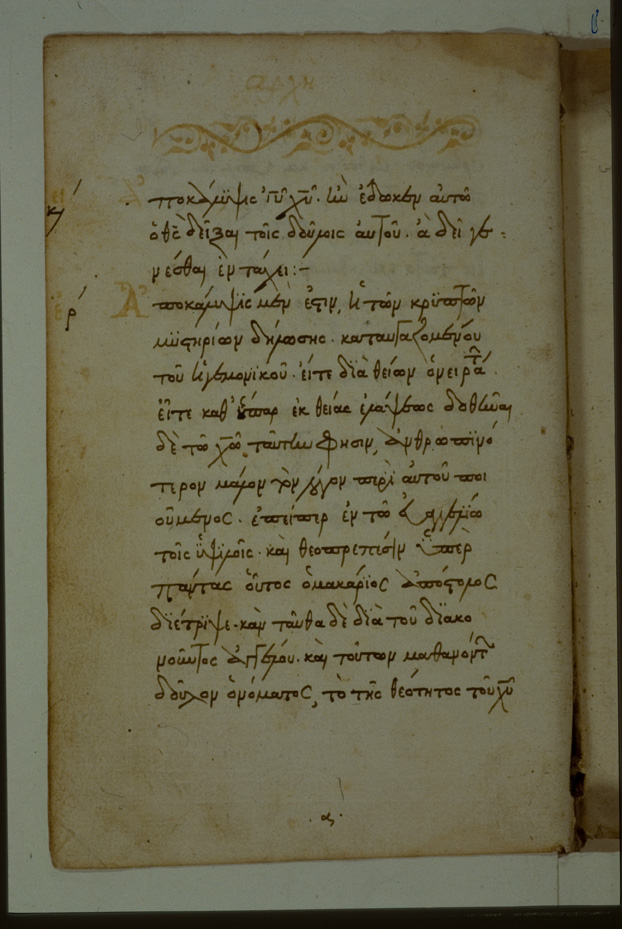 αρχη
Ἀποκάλυψις ἰῦ χῦ· ἣν ἔδωκεν αὐτῶ
ὁ θς δεῖξαι τοῖς δούλοις αὐτοῦ· ἃ δεῖ γε
νέσθαι ἐν τάχει:-
Ἀποκάλυψϊς μὲν ἐστιν, ἡ τῶν κρϋπτῶν
μϋστηρίων δήλωσης· καταυγαζομένου
τοῦ ἡγεμονικοῦ· εἴτε δϊὰ θείων ὀνειράτ
εἴτε καθ' ὕπαρ ἐκ θείας ἐλλάμψεως δοθῆναι
δὲ τῶ χῶ ταύτην φησιν, ἀνθρωπϊνό
τερον μάλλον τὸν λόγον περὶ αὐτοῦ ποι
οῦμενος· ἐπείπερ ἐν τῶ εὐαγγελίω
τοῖς ὑψϊλοῖς· καὶ θεοπρεπέσϊν ὑπὲρ
πάντας οὗτος ὁ μακάρϊος ἀπόστολος
δϊέτρϊψε· κἀν ταῦθα δὲ δϊὰ τοῦ δϊακο
νοῦντος ἀγγέλου· καὶ τούτων μαθανόντ
δοῦλον ὀνόματος, τὸ τῆς θεότητος τοῦ χῦ
α